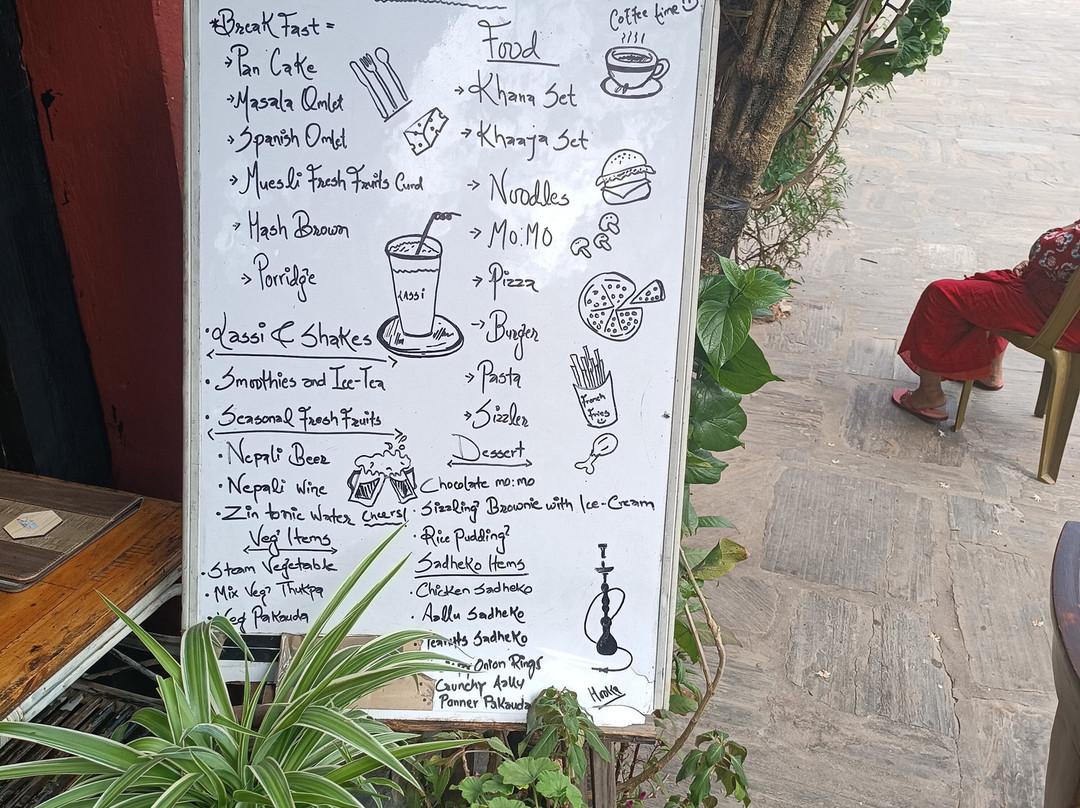 *Break Fast =
→Pan Cake
→Masala Omlet
→Spanish Omlet
→Muesli Fresh Fruits Curd
→Hash Brown
→Porridge
·Lassi & Shakes
·Smoothies and Ice-Tea
·Seasonal Fresh Fruits
·Nepali Beer
·Nepali Wine
·Zin tonic Water
Cheers!
Veg Items
·Steam Vegetable
·Mix Veg Thukpa
·Veg Pakauda
LASSI
Coffee time
Food
→Khana Set
→Khaaja Set
→Noodles
→Mo:Mo
→Pizza
→Burger
→Pasta
→Sizzler
French
Fries
Dessert
Chocolate mo:mo
·Sizzling Brownie with Ice-Cream
·Rice Pudding
Sadheko Items
·Chicken Sadheko
·Aallu Sadheko
Peanuts Sadheko
Onion Rings
Crunchy Aally
Panner Pakauda